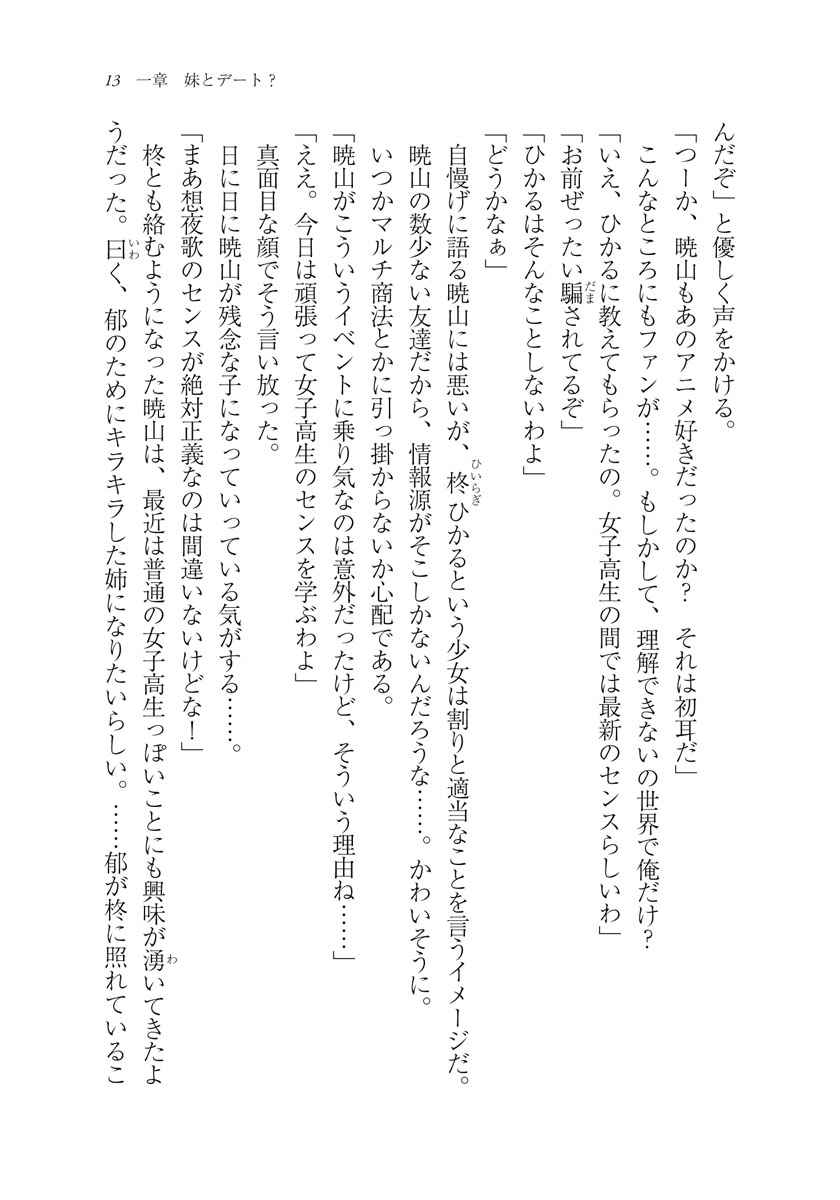 13 一章 妹とデート？
んだぞ」と優しく声をかける。
「つーか、暁山もあのアニメ好きだったのか？ それは初耳だ」
こんなところにもファンが……。もしかして、理解できないの世界で俺だけ？
「いえ、ひかるに教えてもらったの。女子高生の間では最新のセンスらしいわ」
「お前ぜったい騙されてるぞ」
「ひかるはそんなことしないわよ」
「どうかなぁ」
自慢げに語る暁山には悪いが、柊ひかるという少女は割りと適当なことを言うイメージだ。
暁山の数少ない友達だから、情報源がそこしかないんだろうな……。かわいそうに。
いつかマルチ商法とかに引っ掛からないか心配である。
「暁山がこういうイベントに乗り気なのは意外だったけど、そういう理由ね……」
「ええ。今日は頑張って女子高生のセンスを学ぶわよ」
真面目な顔でそう言い放った。
日に日に暁山が残念な子になっていっている気がする……。
「まあ想夜歌のセンスが絶対正義なのは間違いないけどな！」
柊とも絡むようになった暁山は、最近は普通の女子高生っぽいことにも興味が湧いてきたよ
うだった。曰く、郁のためにキラキラした姉になりたいらしい。……郁が柊に照れているこ